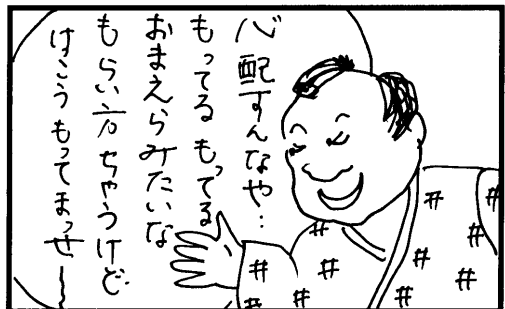 心配すんなや…
もってる もってる
おまえらみたいな
もらい方ちゃうけど
けっこうもってまっせ〜